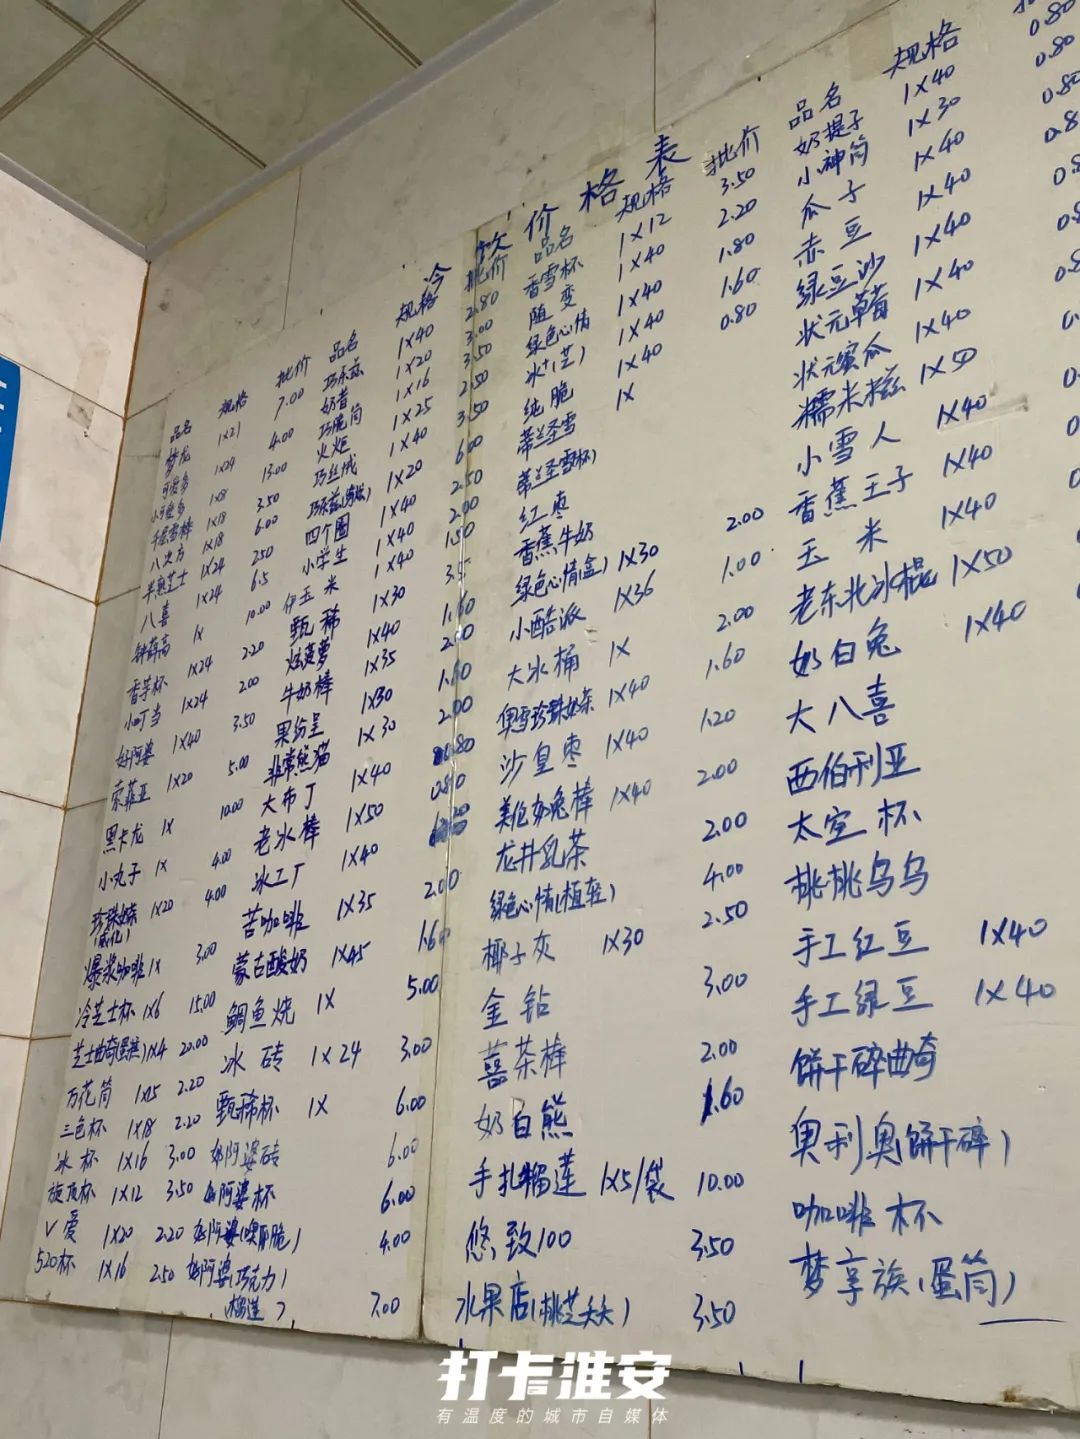 冷饮价格表
品名 规格 批价
梦龙 1X21 7.00
可爱多 1X24 4.00
小可爱多 1X8 13.00
千层雪棒 1X18 3.50
八次方 1X18 6.00
半熟芝士 1X24 250
八喜 1X24 6.5
钟薛高 1X 10.00
香芋杯 1X24 2.20
小叮当 1X24 2.00
好阿婆 1X40 3.50
索菲亚 1X20 5.00
黑卡龙 1X 10.00
小丸子 1X 4.00
珍珠奶茶 1X20 4.00
爆浆咖啡 1X 3.00
冷芝士杯 1X6 15.00
芝士曲奇(蛋糕) 1X4 20.00
万花筒 1X15 2.20
三色杯 1X18 2.20
冰杯 1X16 3.00
旋顶杯 1X12 3.50
V爱 1X20 2.20
520杯 1X16 2.50
品名 规格 批价
巧乐兹 1X40 2.80
奶昔 1X20 3.00
巧脆筒 1X16 3.50
火炬 1X25 2.50
巧丝绒 1X40 3.50
巧乐兹 1X20 6.00
四个圈 1X40 2.50
小学生 1X40 2.00
伊玉米 1X40 1.50
甄稀 1X30 3.5
炫菠萝 1X40 1.60
牛奶棒 1X35
果纷呈 1X30 1.60
非常熊猫 1X30 2.00
大布丁 1X40 0.80
老冰棒 1X50
冰工厂 1X40
苦咖啡 1X35 2.00
蒙古酸奶 1X45 1.60
鲷鱼烧 1X 5.00
冰砖 1X24 3.00
甄稀杯 1X 6.00
好阿婆砖 6.00
好阿婆杯 6.00
好阿婆(嗅脆) 4.00
好阿婆(巧克力)
(榴莲) 7.00
品名 规格 批价
香雪杯 1X12 3.50
随变 1X40 2.20
绿色心情 1X40 1.80
冰+(芝) 1X40 1.60
纯脆 1X40 0.80
蒂兰圣雪 1X
蒂兰圣雪(杯)
红枣
香蕉牛奶 2.00
绿色心情(盒) 1X30 1.00
小酷派 1X36 2.00
大冰桶 1X 1.60
奥雪珍珠奶茶 1X40 1.20
沙皇枣 1X40 2.00
美伦奶兔棒 1X40 2.00
龙井乳茶 4.00
绿色心情(植轻) 2.50
椰子灰 1X30 3.00
金钻 2.00
藠茶棒 1.60
奶白熊
手扎榴莲 1X5/袋 10.00
悠致100 3.50
水果店(桃芝夭夭) 3.50
品名 规格
奶提子 1X40 0.80
小神筒 1X30 0.80
瓜子 1X40 0.80
赤豆 1X40
绿豆沙 1X40
状元草莓 1X40
状元蜜瓜 1X40
糯米糍 1X50
小雪人 1X40
香蕉王子 1X40
玉米 1X40
老东北冰棍 1X50
奶白兔 1X40
大八喜
西伯利亚
太空杯
桃桃乌乌
手工红豆 1X40
手工绿豆 1X40
饼干碎曲奇
奥利奥(饼干碎)
咖啡杯
梦享族(蛋筒)
打卡淮安
有温度的城市自媒体